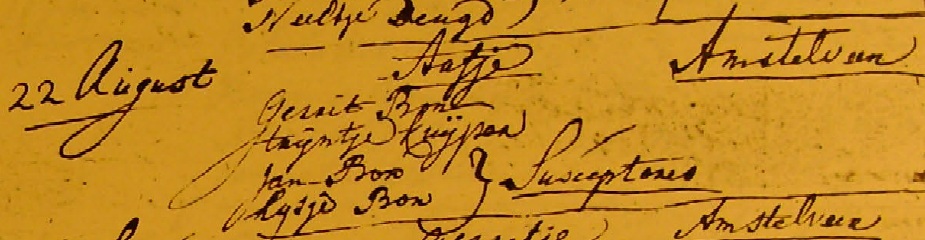 Neeltje Deugd
22 August Aafje Amstelveen
Gerrit Bon
Trijntje Cuijper
Jan Bon
Lijsje Bon } Susceptores
Amstelveen